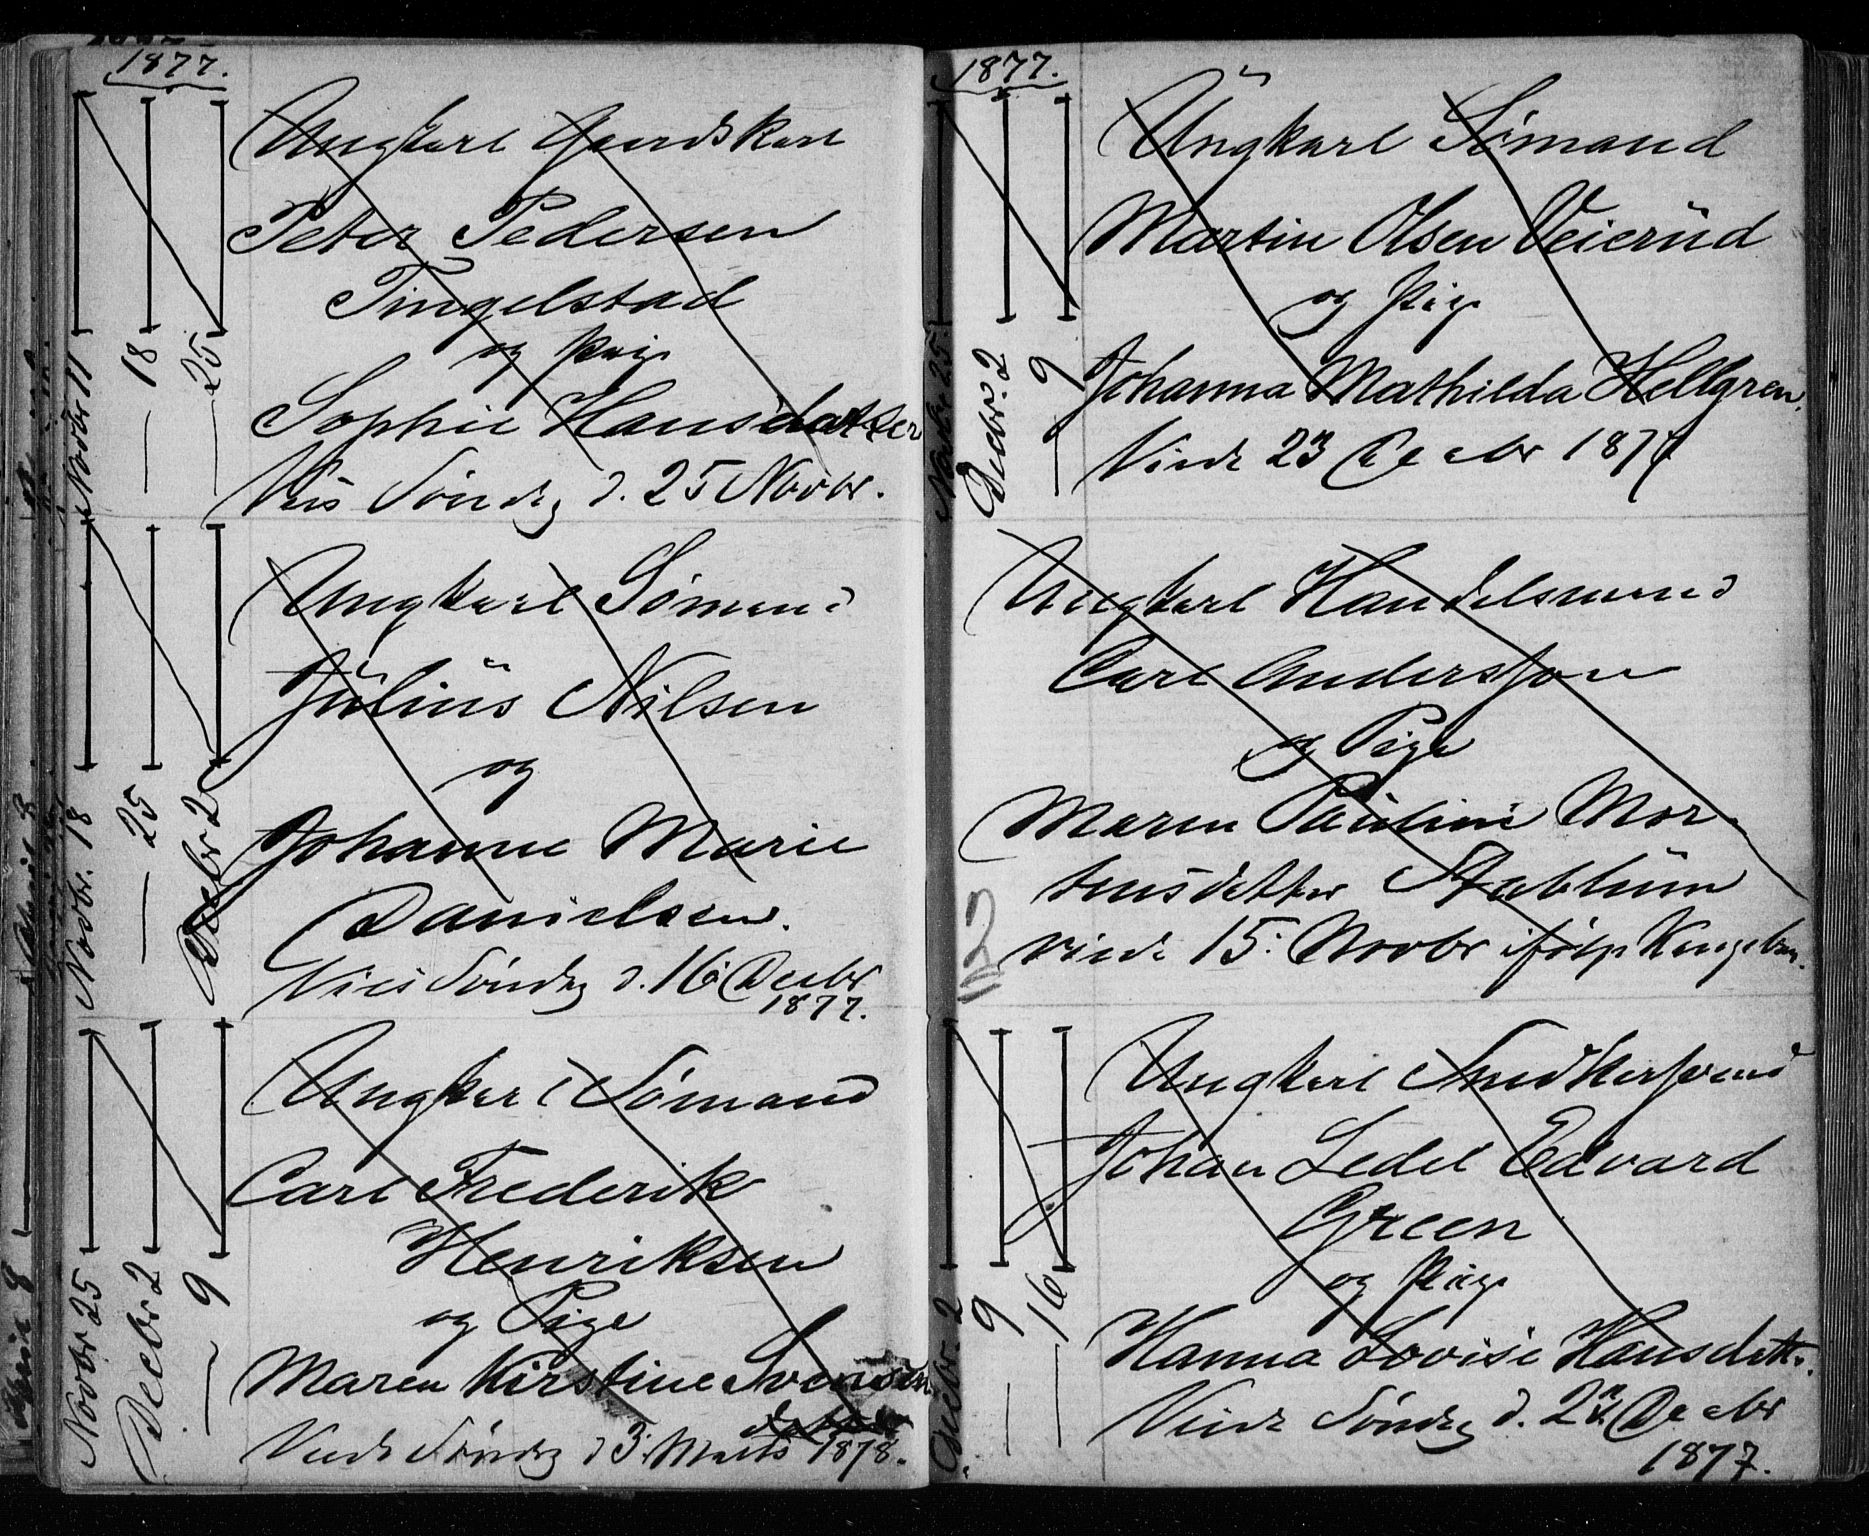 1877.
Novbr 11
— 18
— 25
Ungkarl Gaardskarl
Peter Pedersen
Tingelstad
og Pige
Sophie Hansdatter
Vies Søndag d. 25 Novbr.
Novbr. 18
— 25
Decbr 2
Ungkarl Sømand
Julius Nilsen
og
Johanne Marie
Danielsen.
Vies Søndag d. 16 Decbr
1877.
Novbr 25
Decbr 2
— 9
Ungkarl Sømand
Carl Frederik
Henriksen
og Pige
Maren Kirstine Svendsen
Viede Søndag d 3. Marts 1878.
1877.
Novbr. 25.
Decbr. 2
— 9
Ungkarl Sømand
Martin Olsen Veierud
og Pige
Johanna Mathilda Hellgren.
Viede 23 Decbr 1877
Ungkarl Handelsmand
Carl Andersson
og Pige
Maren Pauline Mor-
tensdatter Stablum
viede 15. Novbr ifølge Kongebr.
Decbr. 2
9
16
Ungkarl Snedkersvend
Johan Ledel Edvard
Green
og Pige
Hanna Lovise Hansdatt.
Viede Søndag d. Decbr
1877.